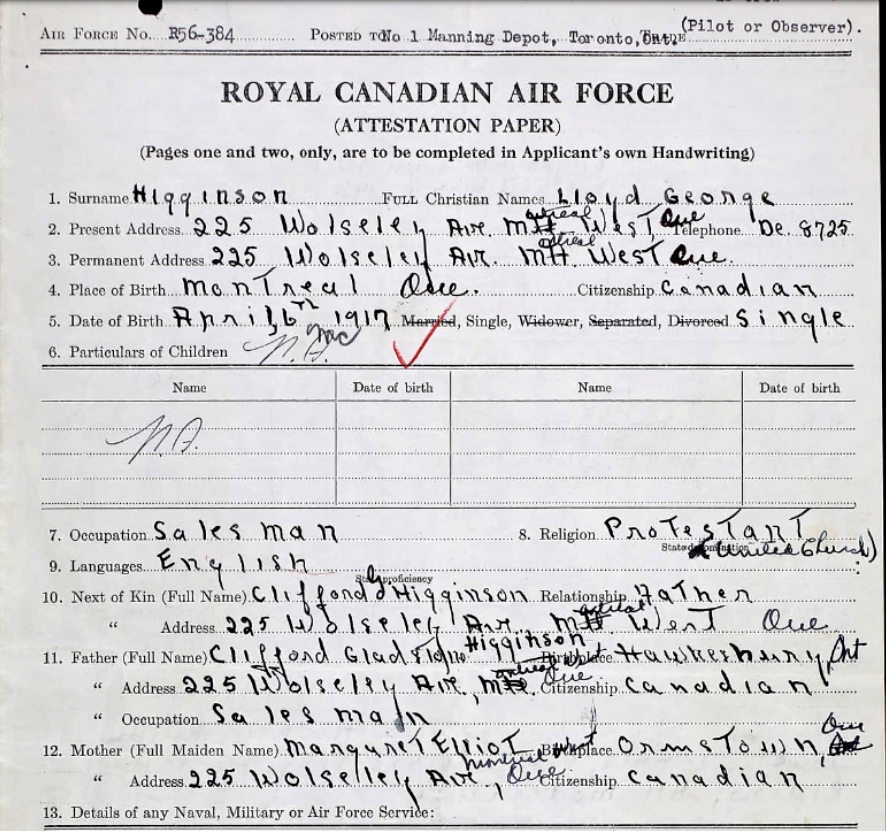 (Pilot or Observer).
AIR FORCE NO. R56-384 POSTED TO No 1 Manning Depot, Toronto, Ont. TRADE
ROYAL CANADIAN AIR FORCE
(ATTESTATION PAPER)
(Pages one and two, only, are to be completed in Applicant's own Handwriting)
1. Surname Higginson FULL Christian Names Lloyd George
2. Present Address 225 Wolseley Ave. Montreal West Que Telephone De. 8725
3. Permanent Address 225 Wolseley Ave. Montreal West Que.
4. Place of Birth Montreal Que. Citizenship Canadian
5. Date of Birth April 6th 1917 Married, Single, Widower, Separated, Divorced Single
6. Particulars of Children N.A.
Name Date of birth Name Date of birth
N.A.
7. Occupation Salesman 8. Religion Protestant
State denomination (United Church)
9. Languages English
State proficiency
10. Next of Kin (Full Name) Clifford G Higginson Relationship Father
" Address 225 Wolseley Ave. Montreal West Que
11. Father (Full Name) Clifford Gladstone Higginson Birthplace Hawkesbury, Ont
" Address 225 Wolseley Ave, Montreal West Que Citizenship Canadian
" Occupation Salesman
12. Mother (Full Maiden Name) Margaret Elliot Birthplace Ormstown, Que
" Address 225 Wolselley Ave, Montreal West Que Citizenship Canadian
13. Details of any Naval, Military or Air Force Service: